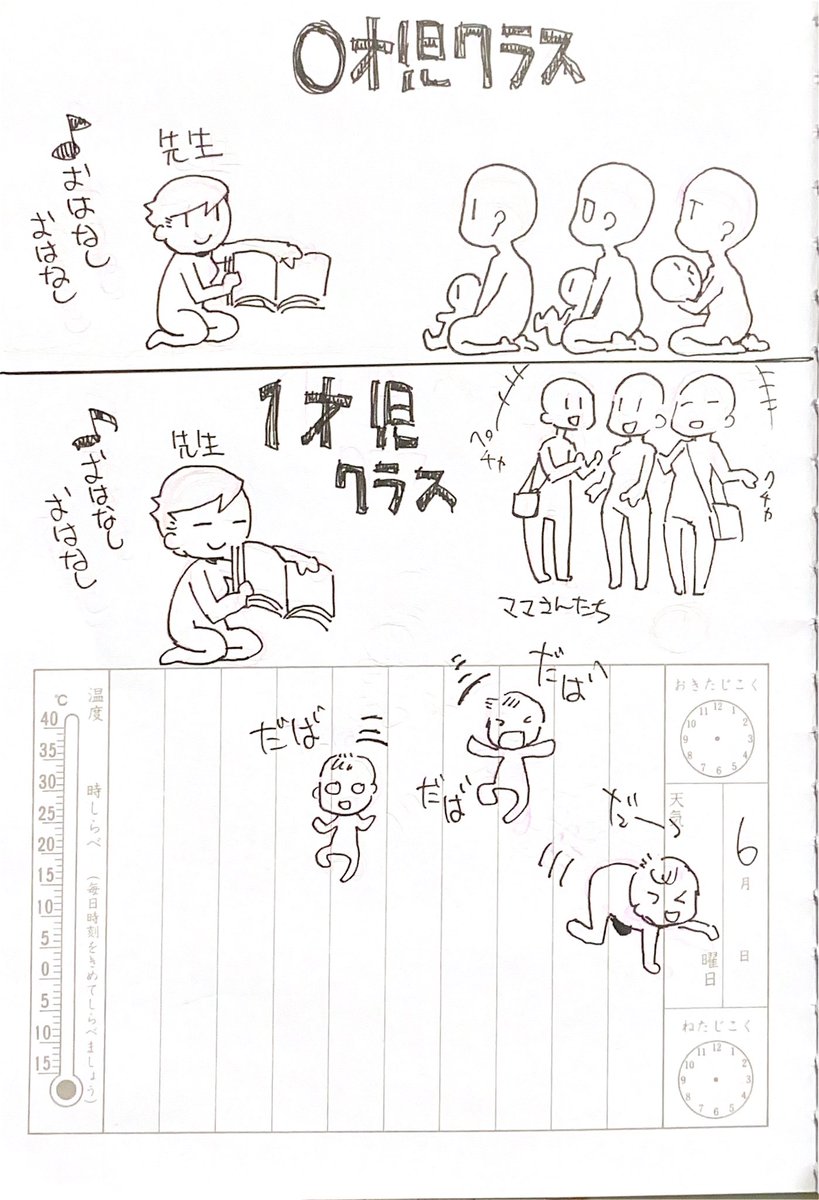 0才児クラス
先生
♪おはなし
おはなし
1才児
クラス
先生
♪おはなし
おはなし
ペチャ
クチャ
ママさんたち
だば
だば
だば
だーっ
温度
時しらべ(毎日時刻をきめてしらべましょう)
℃
40
35
30
25
20
15
10
5
0
5
10
15
おきたじこく
12
1
2
3
4
5
6
7
8
9
10
11
天気
6月
日
曜日
ねたじこく
12
1
2
3
4
5
6
7
8
9
10
11